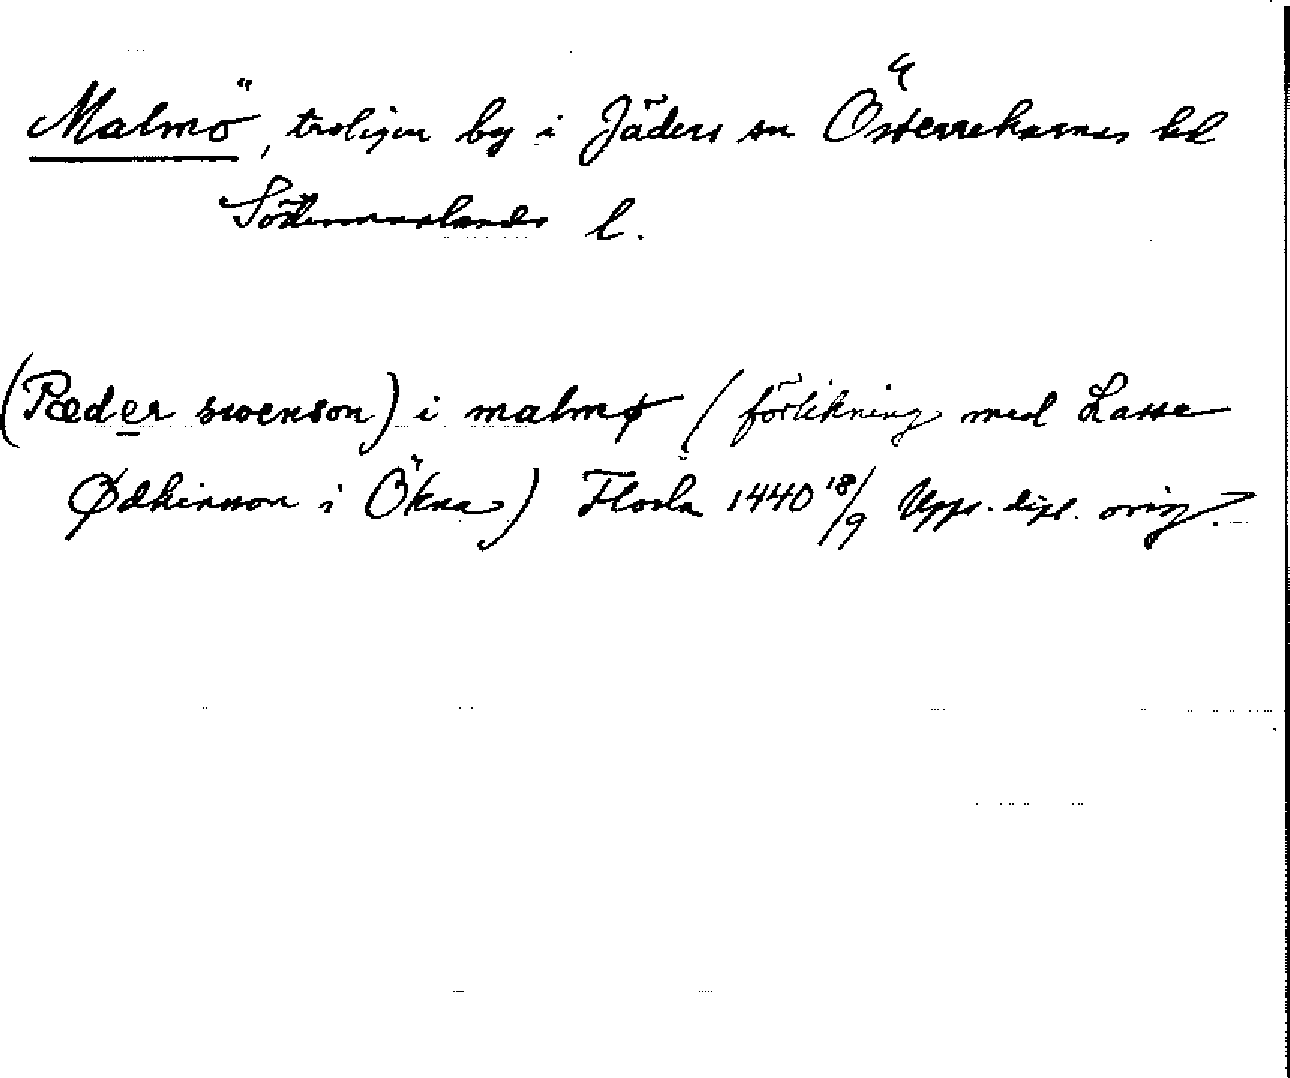 Malmö, troligen by i Jäders sn Österrekarnes hd
Södermanlands l.
(Pæder swenson) i malmø (förlikning med Lasse
Ødhinson i Ökna) Floda 1440 18/9 Upps. dipl. orig.